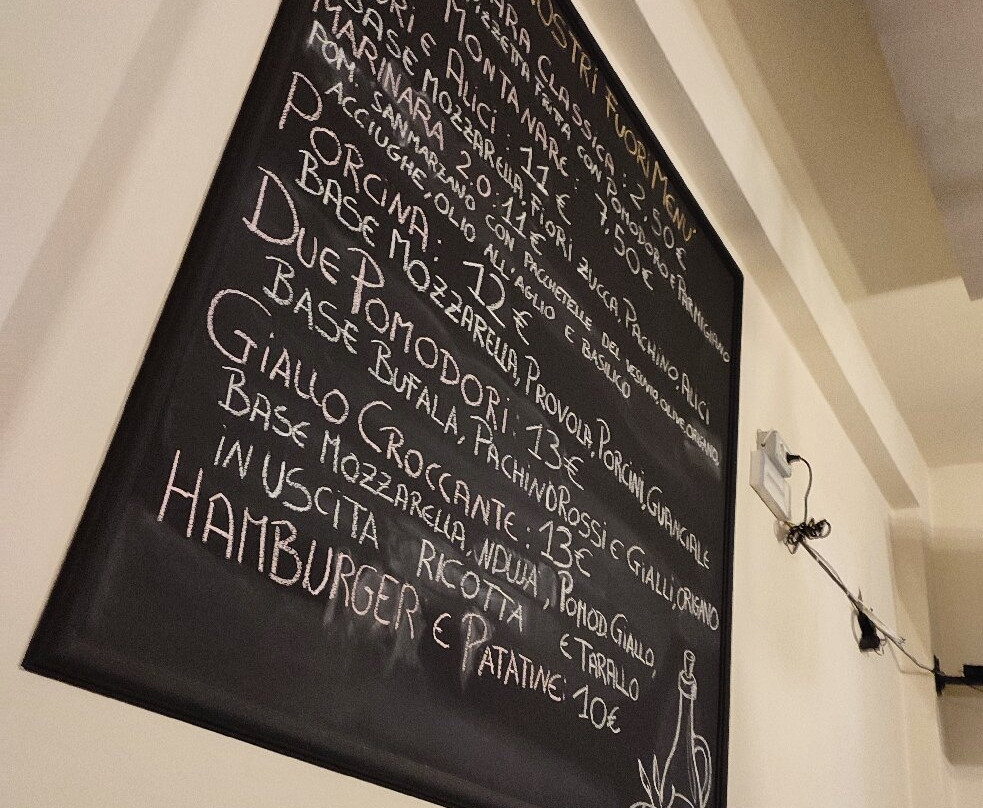 NOSTRI FUORI MENU'
ARA CLASSICA: 2,50€
PIZZETTA FRITTA CON POMODORO E PARMIGIANO
MONTANARE: 7,50€
ORI E ALICI: 11€
BASE MOZZARELLA, FIORI ZUCCA, PACHINO, ALICI
MARINARA 2.0: 11€
POM. SANMARZANO CON PACCHETELLE DEL VESUVIO, OLIVE, ORIGANO,
ACCIUGHE, OLIO ALL'AGLIO E BASILICO
PORCINA: 12€
BASE MOZZARELLA, PROVOLA, PORCINI, GUANCIALE
DUE POMODORI: 13€
BASE BUFALA, PACHINO ROSSI E GIALLI, ORIGANO
GIALLO CROCCANTE: 13€
BASE MOZZARELLA, NDUJA, POMOD. GIALLO,
IN USCITA RICOTTA E TARALLO
HAMBURGER E PATATINE: 10€